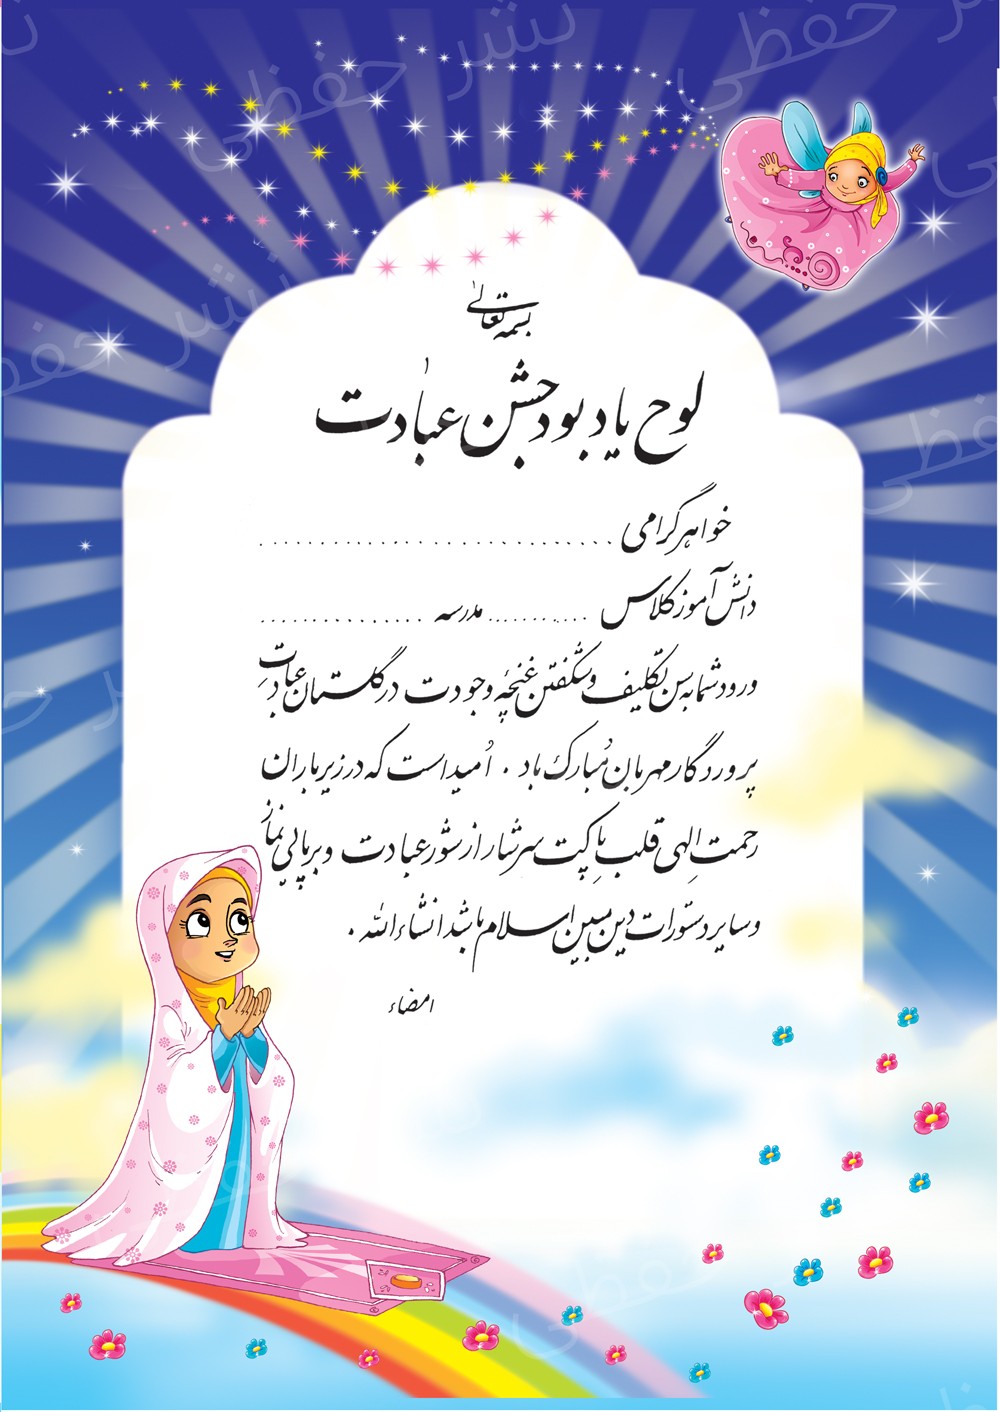 بسمه تعالیٰ
لوح یادبود جشن عبادت
خواهر گرامی ........................................
دانش آموز کلاس .............. مدرسه ..................
ورود شما به سن تکلیف و شکفتن غنچهٔ وجودت در گلستان عبادتِ
پروردگار مهربان مُبارک باد . اُمید است که در زیر باران
رحمت اِلهی قلب پاکت سرشار از شور عبادت و برپایی نماز
و سایر دستورات دین مبین اسلام باشد انشاءالله .
امضاء
نشر حفظی